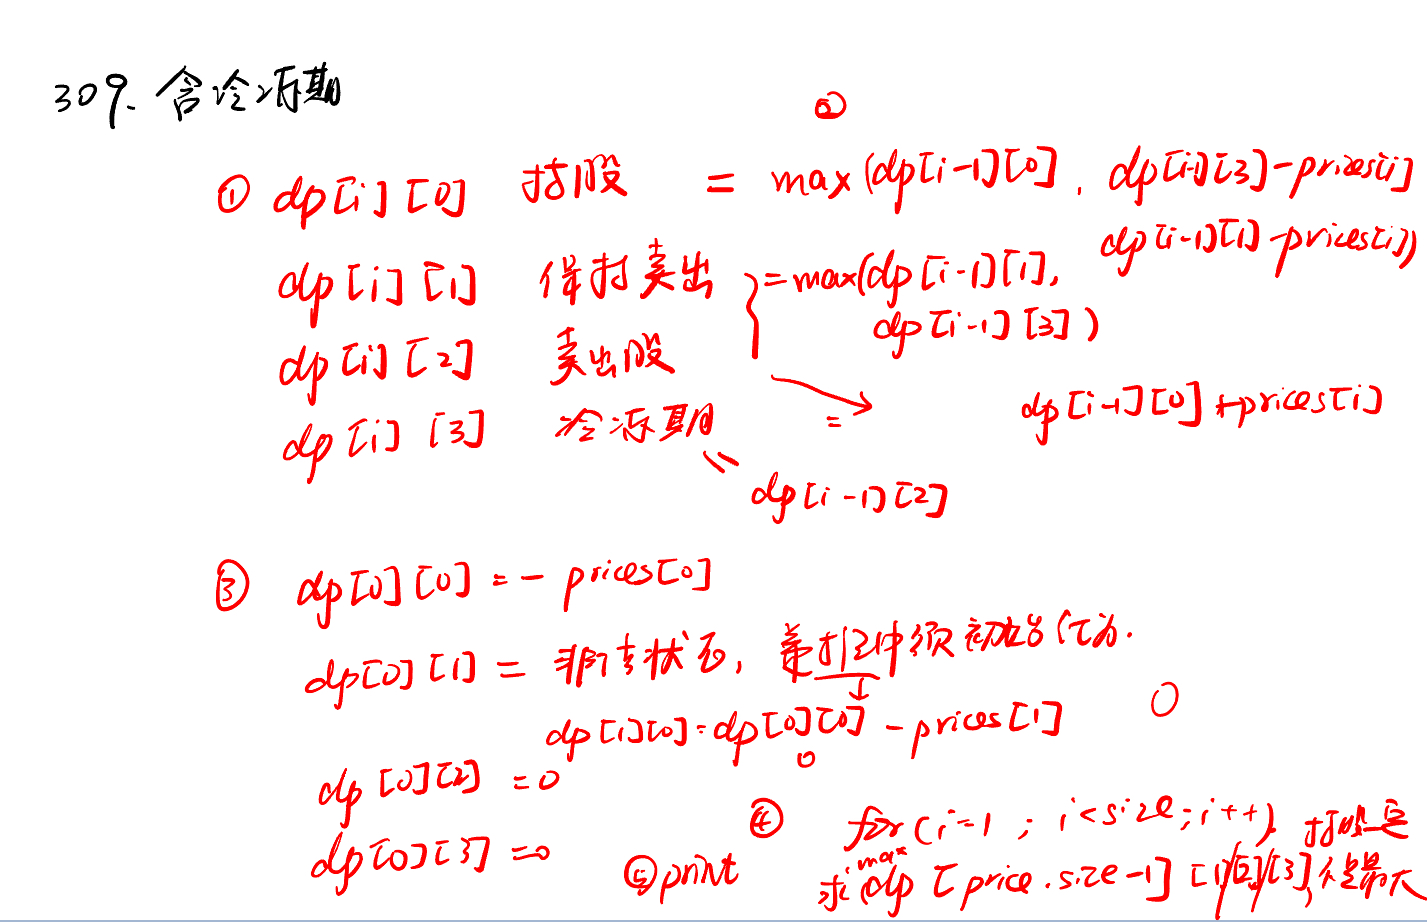 309. 含冷冻期
②
① dp[i][0] 持股 = max(dp[i-1][0], dp[i-1][3]-prices[i]
dp[i-1][1]-prices[i])
dp[i][1] 保持卖出 =max(dp[i-1][1],
dp[i-1][3])
dp[i][2] 卖出股
= dp[i-1][0]+prices[i]
dp[i][3] 冷冻期
= dp[i-1][2]
③ dp[0][0] = -prices[0]
dp[0][1] = 非法状态, 递推中须初始化为.
dp[1][0]=dp[0][0]-prices[1] 0
0
dp[0][2] =0
dp[0][3] =0
④ for(i=1 ; i<size; i++)
⑤ print
求 max dp[price.size-1] [1]/[2]/[3], 最大